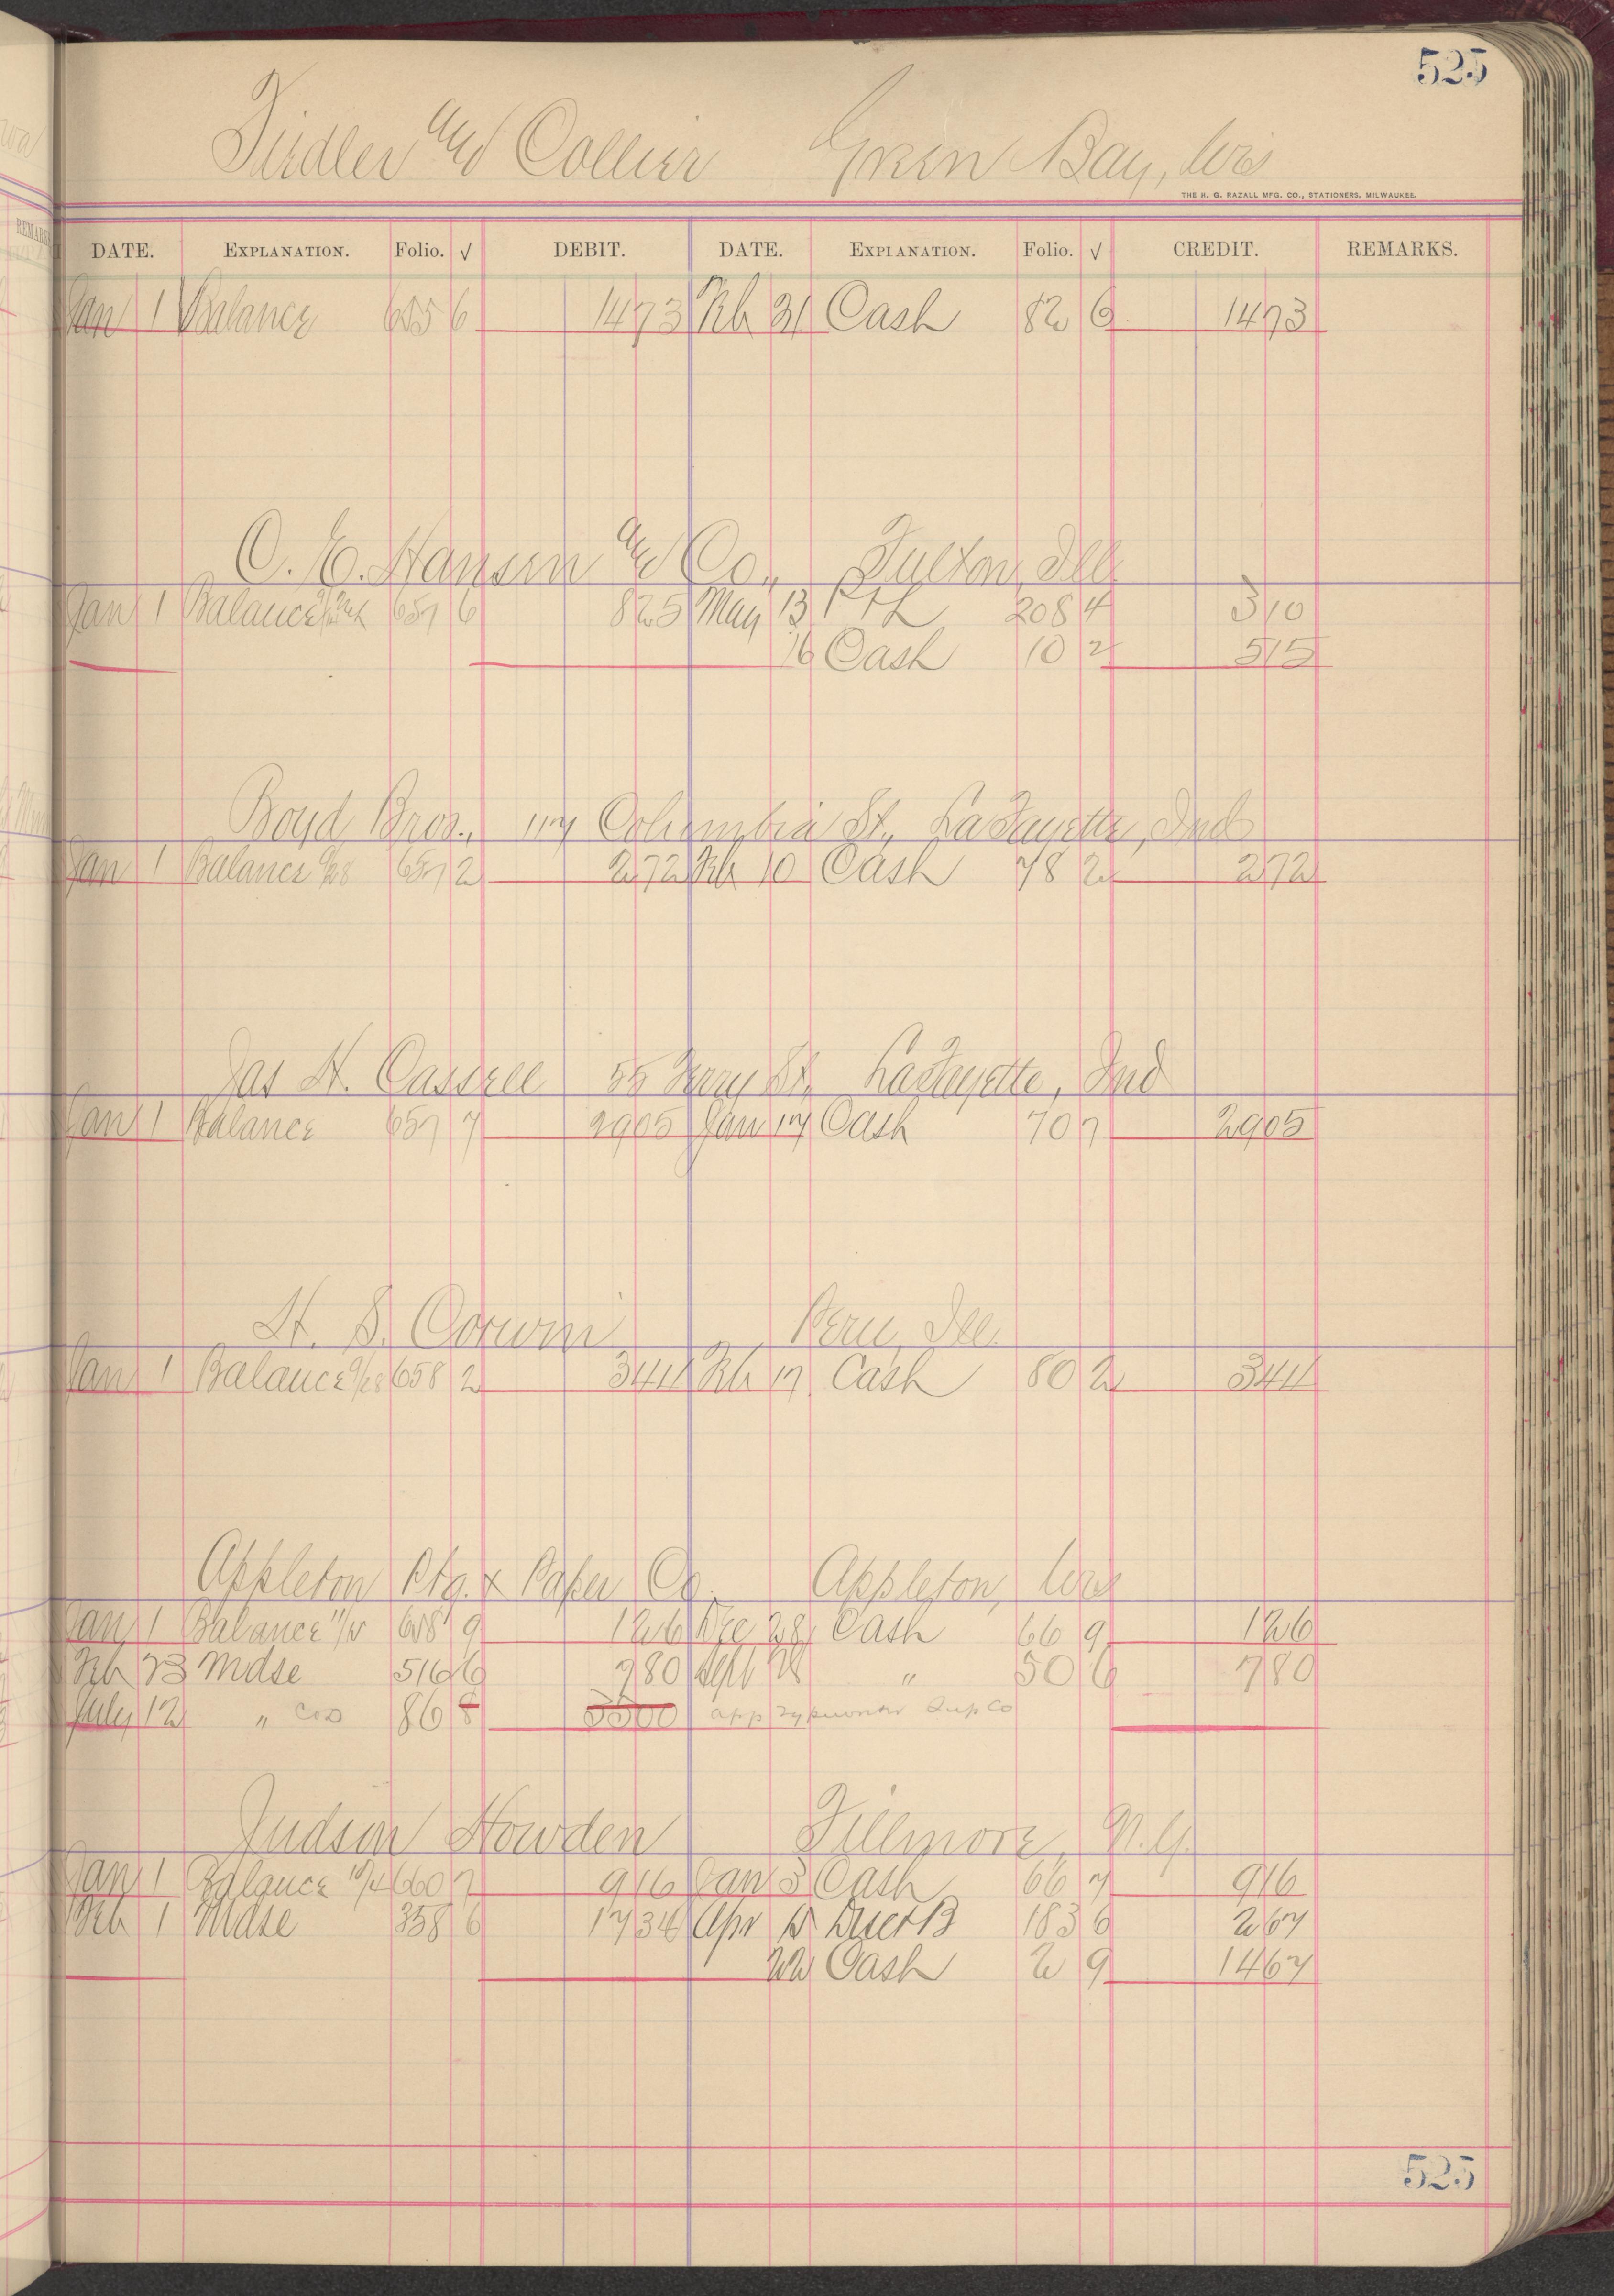 525
Fiedler and Collier Green Bay, Wis
THE H. G. RAZALL MFG. CO., STATIONERS, MILWAUKEE.
DATE. EXPLANATION. Folio. √ DEBIT. DATE. EXPLANATION. Folio. √ CREDIT. REMARKS.
Jan 1 Balance 655 6 1473 Feb 21 Cash 82 6 1473
C. E. Hansen and Co., Fulton, Ill
Jan 1 Balance 657 6 825 May 13 P & L 208 4 310
16 Cash 10 2 515
Boyd Bros., 117 Columbia St., LaFayette, Ind
Jan 1 Balance 9/28 657 2 272 Feb 10 Cash 78 2 272
Jas H. Cassell 55 Ferry St, LaFayette, Ind
Jan 1 Balance 657 7 2905 Jan 17 Cash 70 7 2905
H. S. Corwin Peru, Ill.
Jan 1 Balance 9/28 658 2 344 Feb 17 Cash 80 2 344
Appleton Ptg. & Paper Co. Appleton, Wis
Jan 1 Balance 658 9 126 Dec 28 Cash 66 9 126
Feb 23 Mdse 516 6 780 Sept 28 " 50 6 780
July 12 " COD 86 8 3500 App Typewriter Sup Co
Judson Howden Fillmore, N.Y.
Jan 1 Balance 10/4 660 7 916 Jan 3 Cash 66 7 916
Feb 1 Mdse 358 6 1734 Apr 15 Disct B 183 6 267
22 Cash 2 9 1467
525